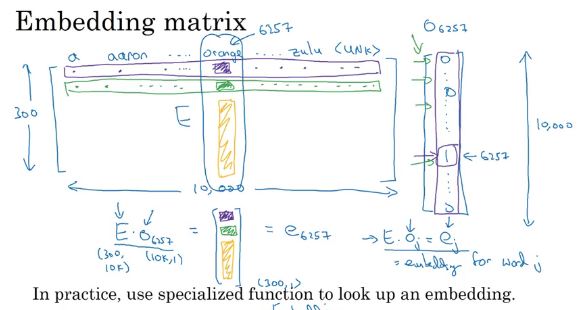 Embedding matrix
6257
O6257
a aaron ..... orange ..... zulu <UNK>
300
E
0
0
1 ← 6257
0
10,000
10,000
E · O6257 = = e6257
(300, 10K) (10K,1)
(300,1)
→ E · Oj = ej
= embedding for word j
In practice, use specialized function to look up an embedding.